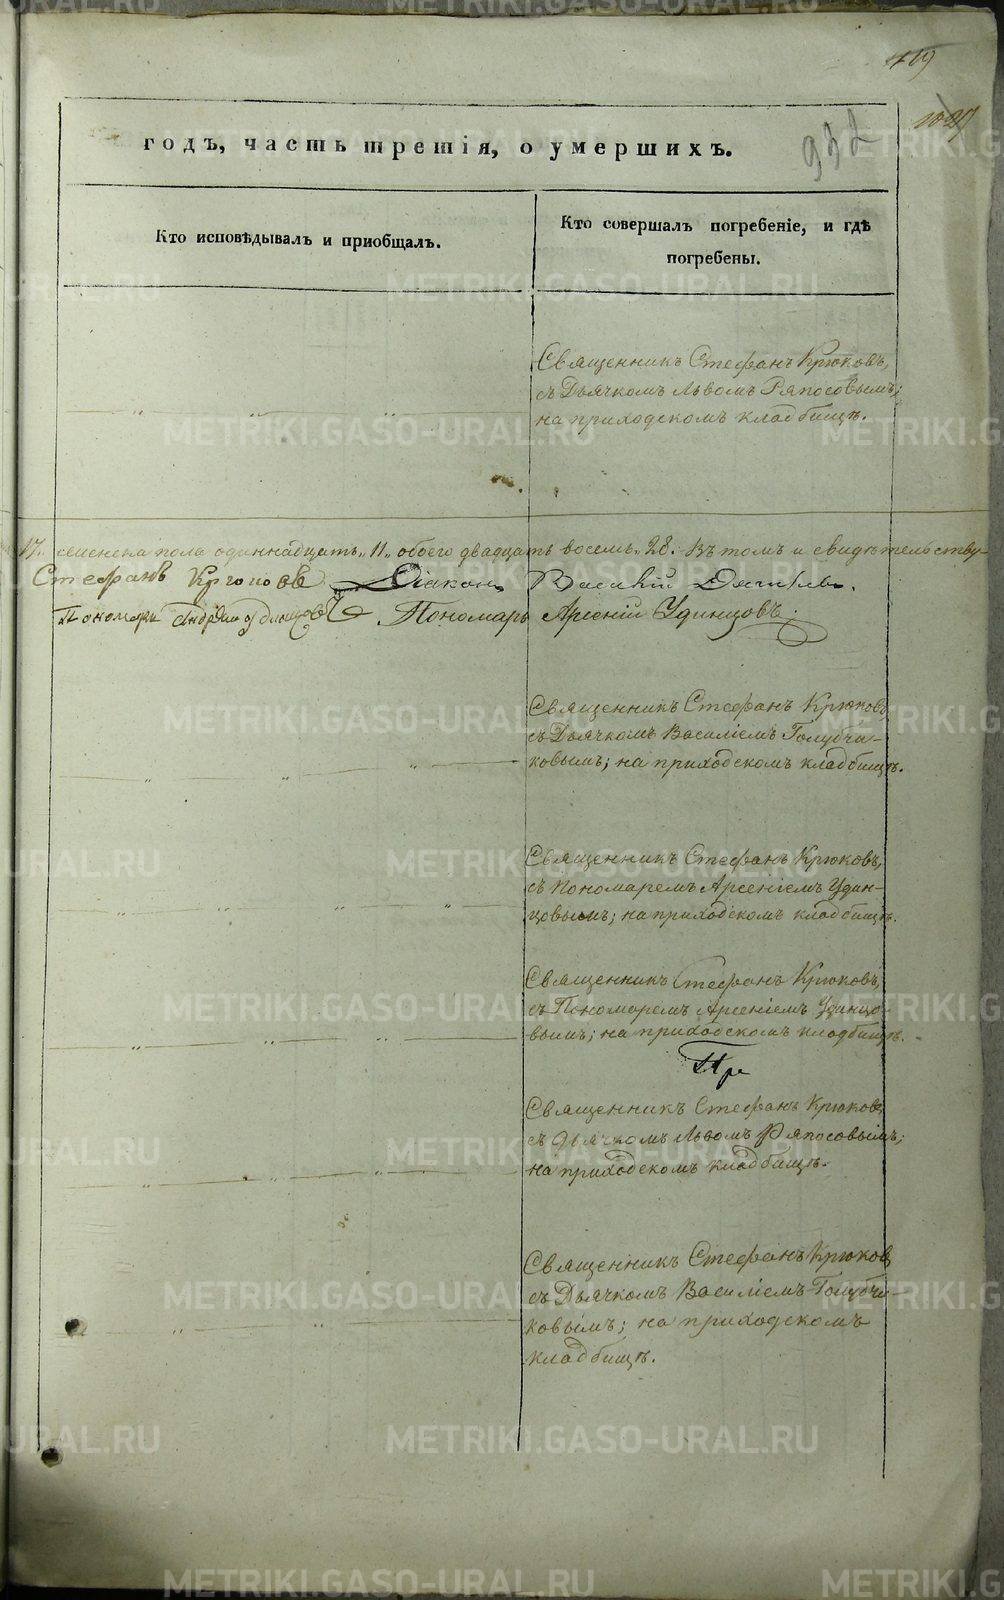 419
1027
932
годъ, часть третія, о умершихъ.
Кто исповѣдывалъ и пріобщалъ.
Кто совершалъ погребеніе, и гдѣ
погребены.
Священникъ Стефанъ Крюковъ,
съ Дьячкомъ Львомъ Ряпосовымъ;
на приходскомъ кладбищѣ.
17. женска пола одиннадцать „11„ обоего двадцать восемь „28. Въ томъ и свидѣтельству-
Стефанъ Крюковъ Діаконъ Василій
Пономарь Андрей Пономарь Арсеній Удинцовъ.
Священникъ Стефанъ Крюковъ,
съ Дьячкомъ Василіемъ Голубчи-
ковымъ; на приходскомъ кладбищѣ.
Священникъ Стефанъ Крюковъ,
съ Пономаремъ Арсеніемъ Удин-
цовымъ; на приходскомъ кладбищѣ.
Священникъ Стефанъ Крюковъ,
съ Пономаремъ Арсеніемъ Удинцо-
вымъ; на приходскомъ кладбищѣ.
Священникъ Стефанъ Крюковъ,
съ Дьячкомъ Львомъ Ряпосовымъ;
на приходскомъ кладбищѣ.
Священникъ Стефанъ Крюковъ
съ Дьячкомъ Василіемъ Голубчи-
ковымъ; на приходскомъ
кладбищѣ.
METRIKI.GASO-URAL.RU